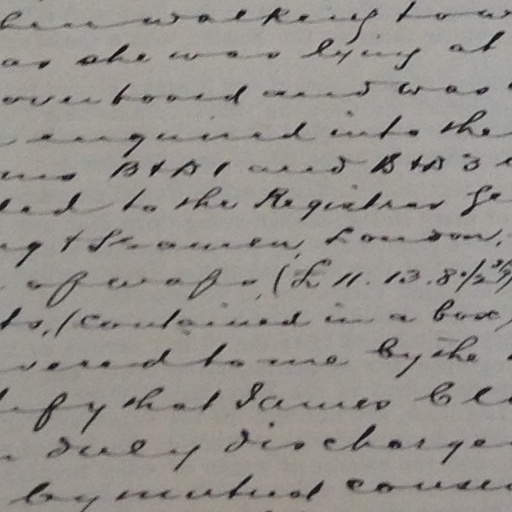 walking tow
as she was lying at
overboard and was
enquired into the
B & D 1 and B & D 3
to the Registrar Ge
& Seamen, London,
of wages, (£ 11. 13. 8
(contained in a box)
to me by the
that James Cl
duly discharge
by mutual conse